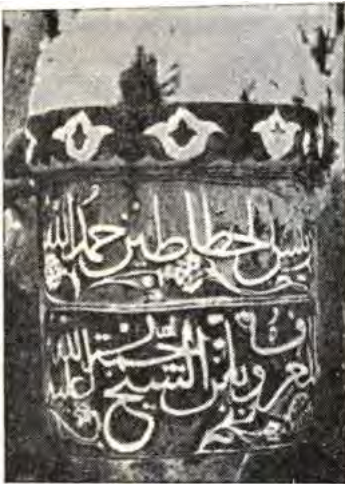 رئيس الخطاطين حمد الله
المعروف بابن الشيخ رحمة الله عليه